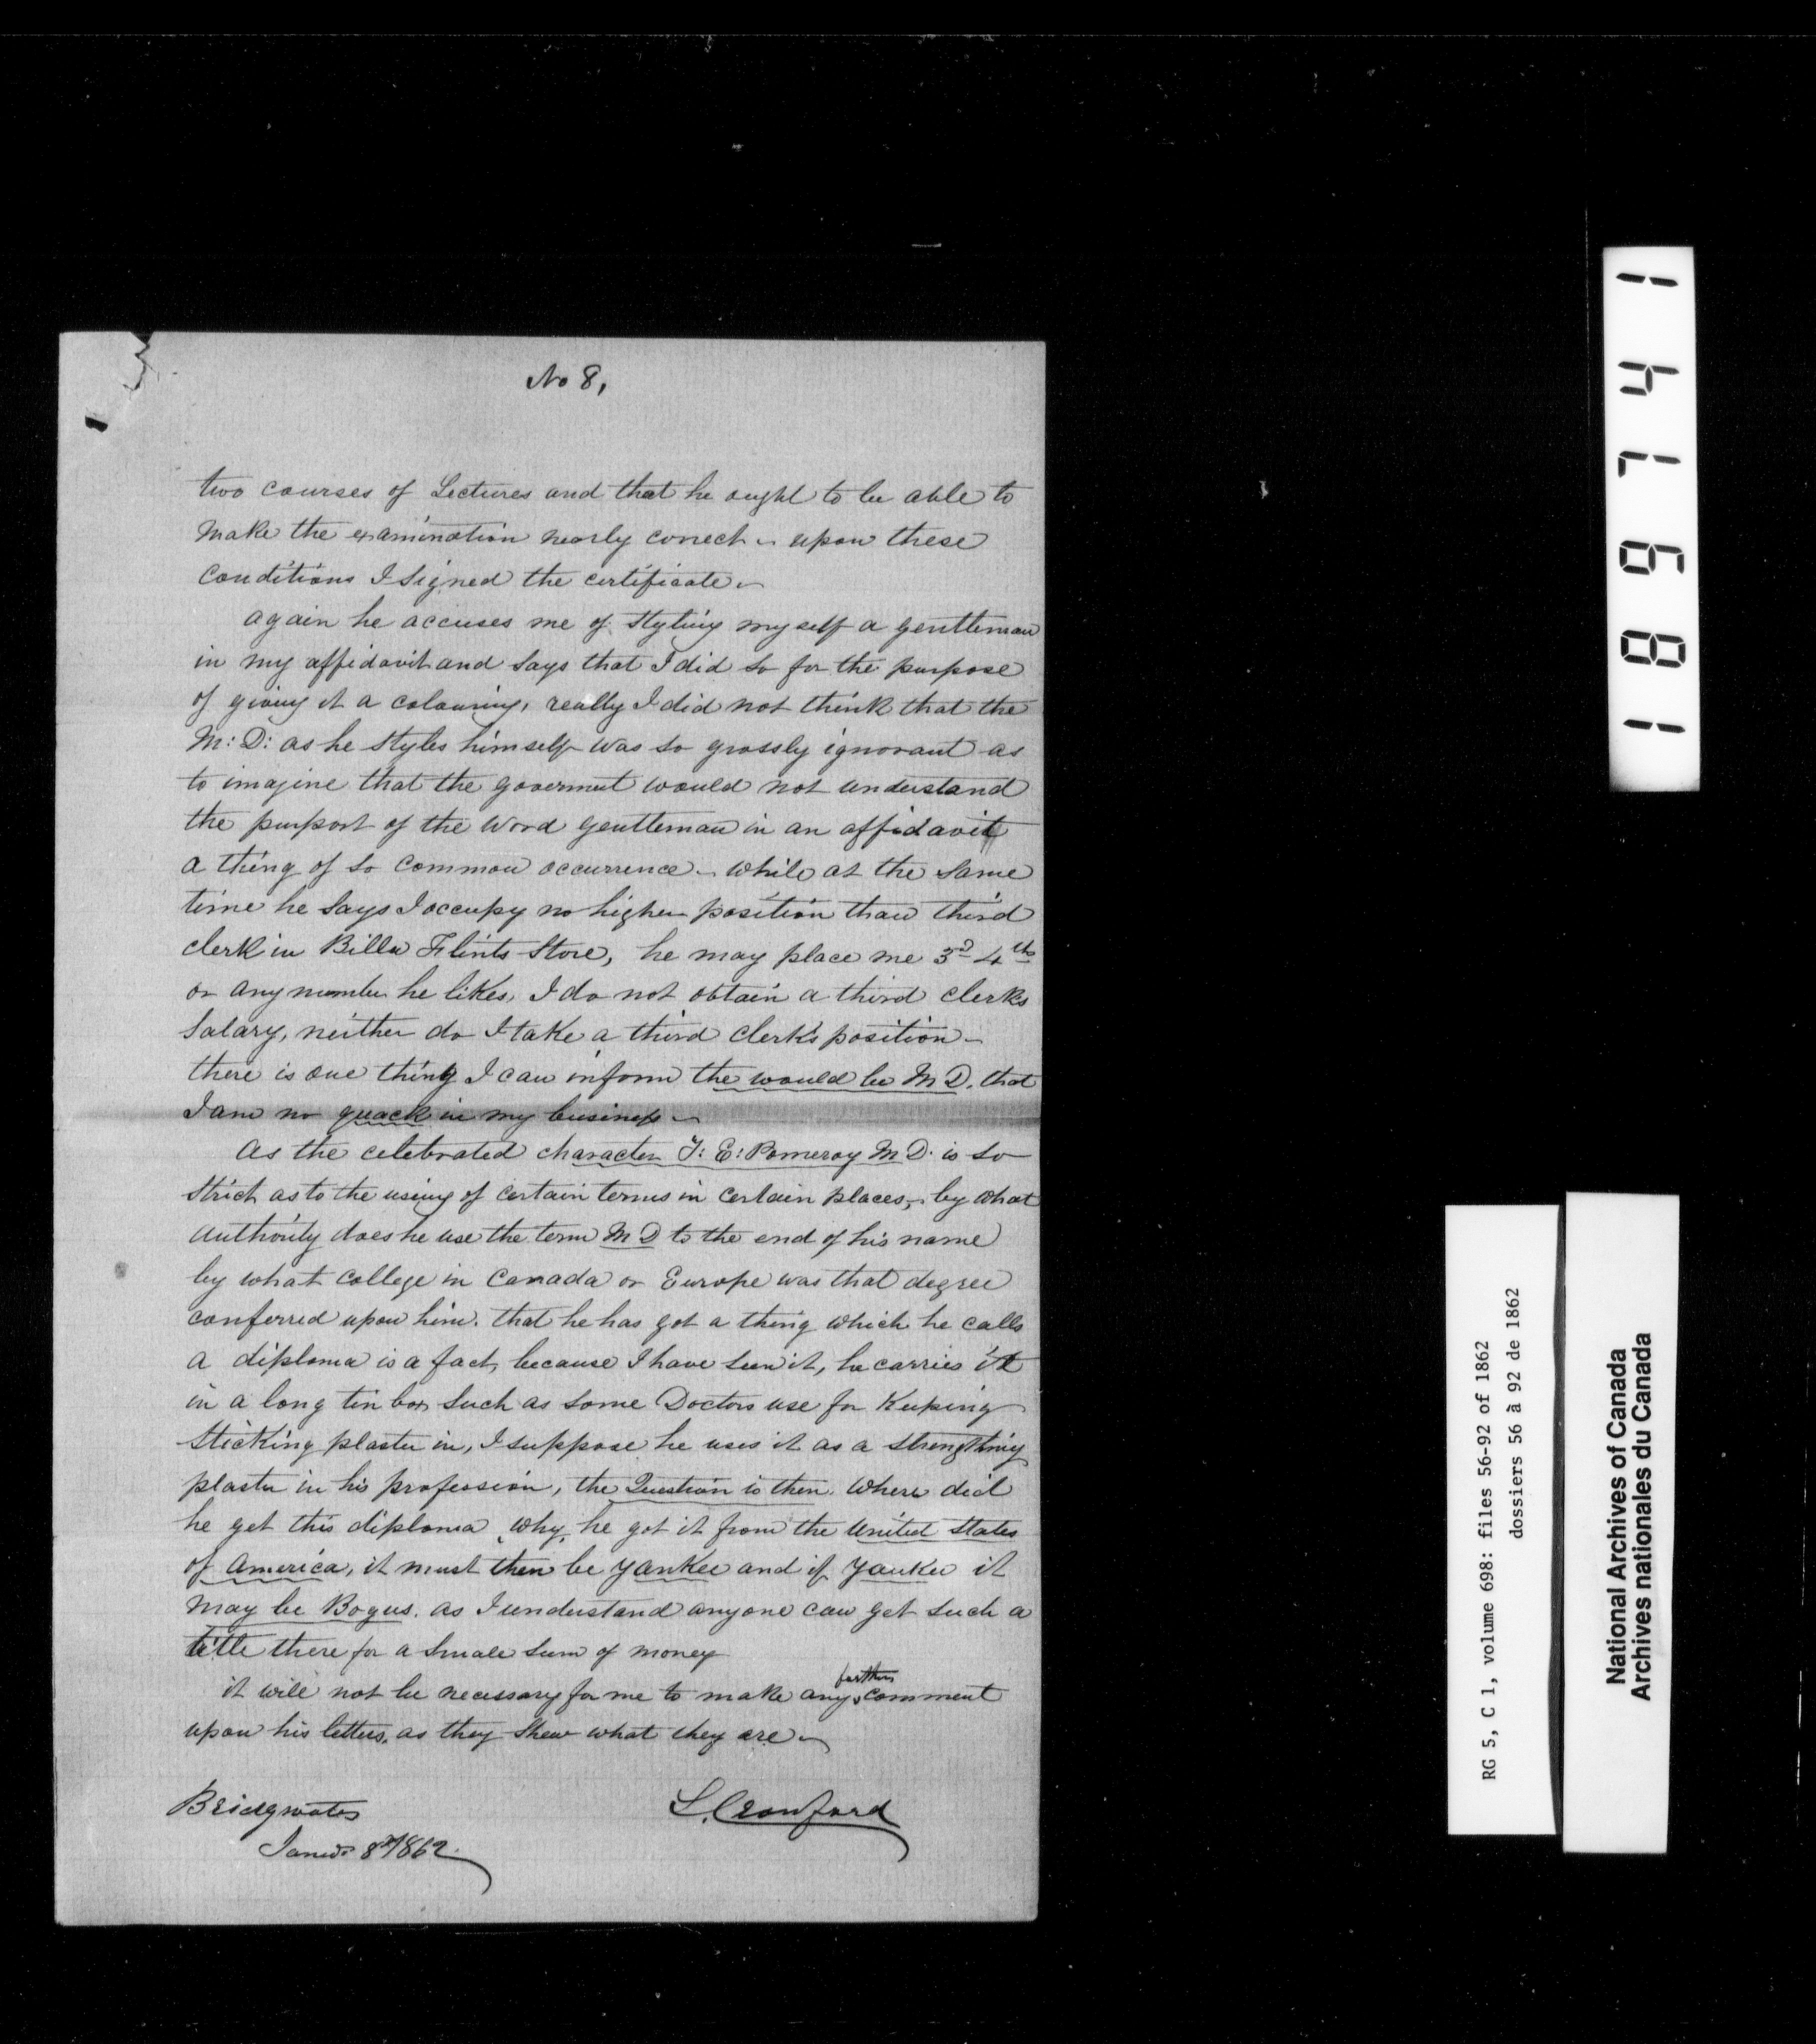 No 8,
two courses of Lectures and that he ought to be able to
make the examination nearly correct – upon these
conditions I signed the certificate –
again he accuses me of styling myself a gentleman
in my affidavit and says that I did so for the purpose
of giving it a colouring, really I did not think that the
M: D: as he styles himself was so grossly ignorant as
to imagine that the goverment would not understand
the purport of the word gentleman in an affidavit
a thing of so common occurrence – while at the same
time he says I occupy no higher position than third
clerk in Billa Flints Store, he may place me 3d 4th
or any number he likes, I do not obtain a third clerks
salary, neither do I take a third clerk's position –
there is one thing I can inform the would be M D. that
I am no quack in my business –
As the celebrated character T: E: Pomeroy M D. is so
strict as to the using of certain terms in certain places, – by what
authority does he use the term M D to the end of his name
by what college in Canada or Europe was that degree
conferred upon him. that he has got a thing which he calls
a diploma is a fact, because I have seen it, he carries it
in a long tin box such as some Doctors use for Keeping
Sticking plaster in, I suppose he uses it as a strengthing
plaster in his profession, the Question is then. Where did
he get this diploma, why, he got it from the United States
of America, it must then be Yankee and if Yankee it
may be Bogus. as I understand anyone can get such a
title there for a smale sum of money
it will not be necessary for me to make any further comment
upon his letters, as they shew what they are –
Bridgwater
L. Crawford
8th 1862
1 8 6 7 4 1
RG 5, C 1, volume 698: files 56-92 of 1862
dossiers 56 à 92 de 1862
National Archives of Canada
Archives nationales du Canada